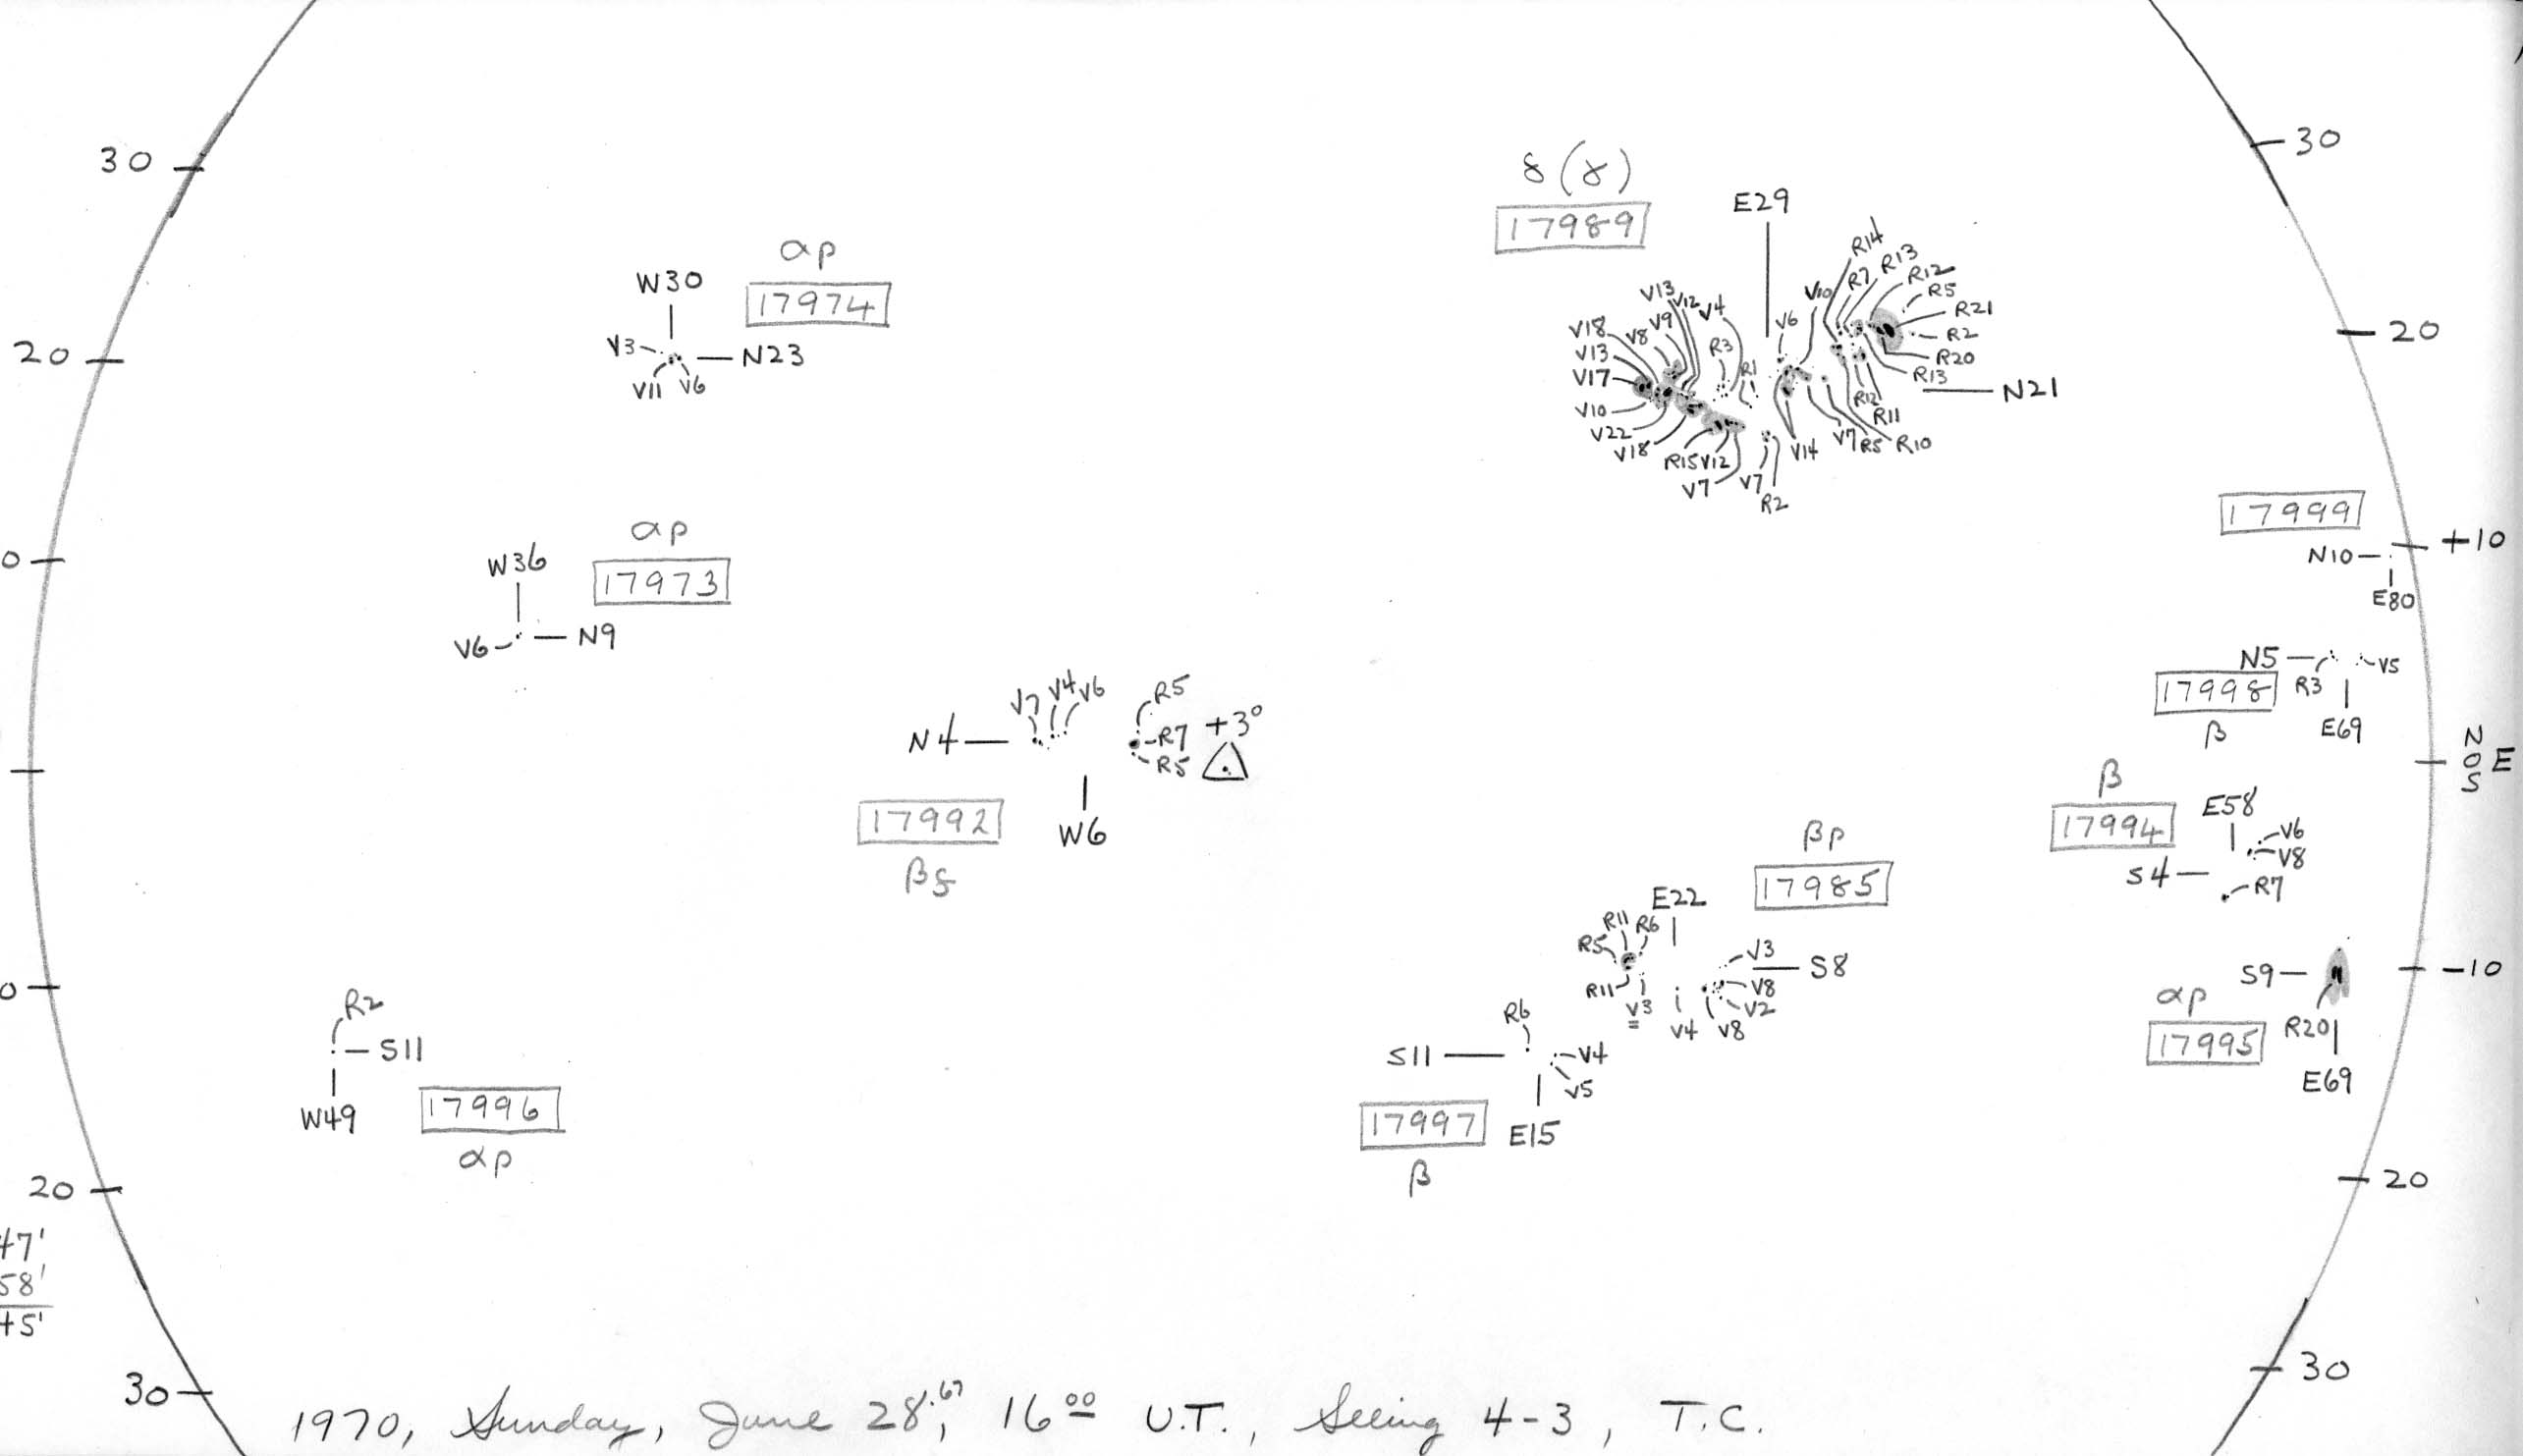 30
20
0
0
20
47'
58'
45'
30
αp
W30
17974
V3
N23
V11 V6
αp
W36
17973
V6
N9
V7 V4 V6
R5
N4
R7
+3°
R5
17992
W6
βδ
R2
S11
W49
17996
αp
δ (γ)
17989
E29
R14
R7 R13
R12
R5
R21
R2
R20
R13
N21
V13
V12
V4
V18
V8
V9
V13
V17
R3
R1
V6
V10
V10
V22
V18
R15 V12
V7
V7
R2
V14
V7
R5
R10
R12
R11
17999
N10
E80
N5
V5
17998
R3
β
E69
β
E58
17994
V6
V8
S4
R7
S9
αp
17995
R20
E69
βp
17985
E22
R11
R5
R6
V3
S8
R11
V3
V8
V2
V4
V8
R6
S11
V4
V5
17997
E15
β
30
20
+10
N
O E
S
-10
20
30
1970, Sunday, June 28.67, 16 00 U.T., Seeing 4-3, T.C.